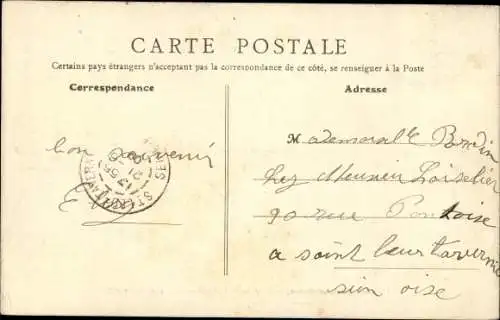 CARTE POSTALE
Certains pays étrangers n'acceptant pas la correspondance de ce côté, se renseigner à la Poste
Correspondance
Adresse
bon souvenir
Mademoiselle Bondin
chez Meunier Loiselier
90 rue Pontoise
a saint leu tavernie
sien oise